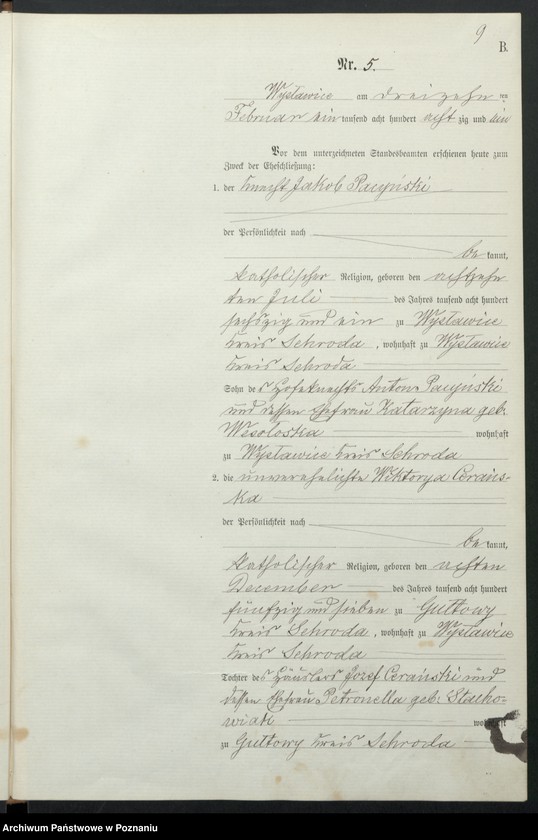 9
B.
Nr. 5.
Wysławice am dreizehn ten
Februar ein tausend acht hundert acht zig und ein
Vor dem unterzeichneten Standesbeamten erschienen heute zum
Zweck der Eheschließung:
1. der Knecht Jakob Pacyński
der Persönlichkeit nach
be kannt,
katholischer Religion, geboren den achtzehn
ten Juli des Jahres tausend acht hundert
sechszig und ein zu Wysławice
Kreis Schroda, wohnhaft zu Wysławice
Kreis Schroda
Sohn des Hofeknechts Anton Pacyński
und dessen Ehefrau Katarzyna geb.
Wesoloska wohnhaft
zu Wysławice Kreis Schroda
2. die unverehelichte Wiktorya Cerańs-
ka
der Persönlichkeit nach
be kannt,
katholischer Religion, geboren den achten
Dezember des Jahres tausend acht hundert
fünfzig und sieben zu Gultowy
Kreis Schroda, wohnhaft zu Wysławice
Kreis Schroda
Tochter des Häuslers Jozef Cerański und
dessen Ehefrau Petronella geb. Stacho-
wiak wohnhaft
zu Gultowy Kreis Schroda
Archiwum Państwowe w Poznaniu